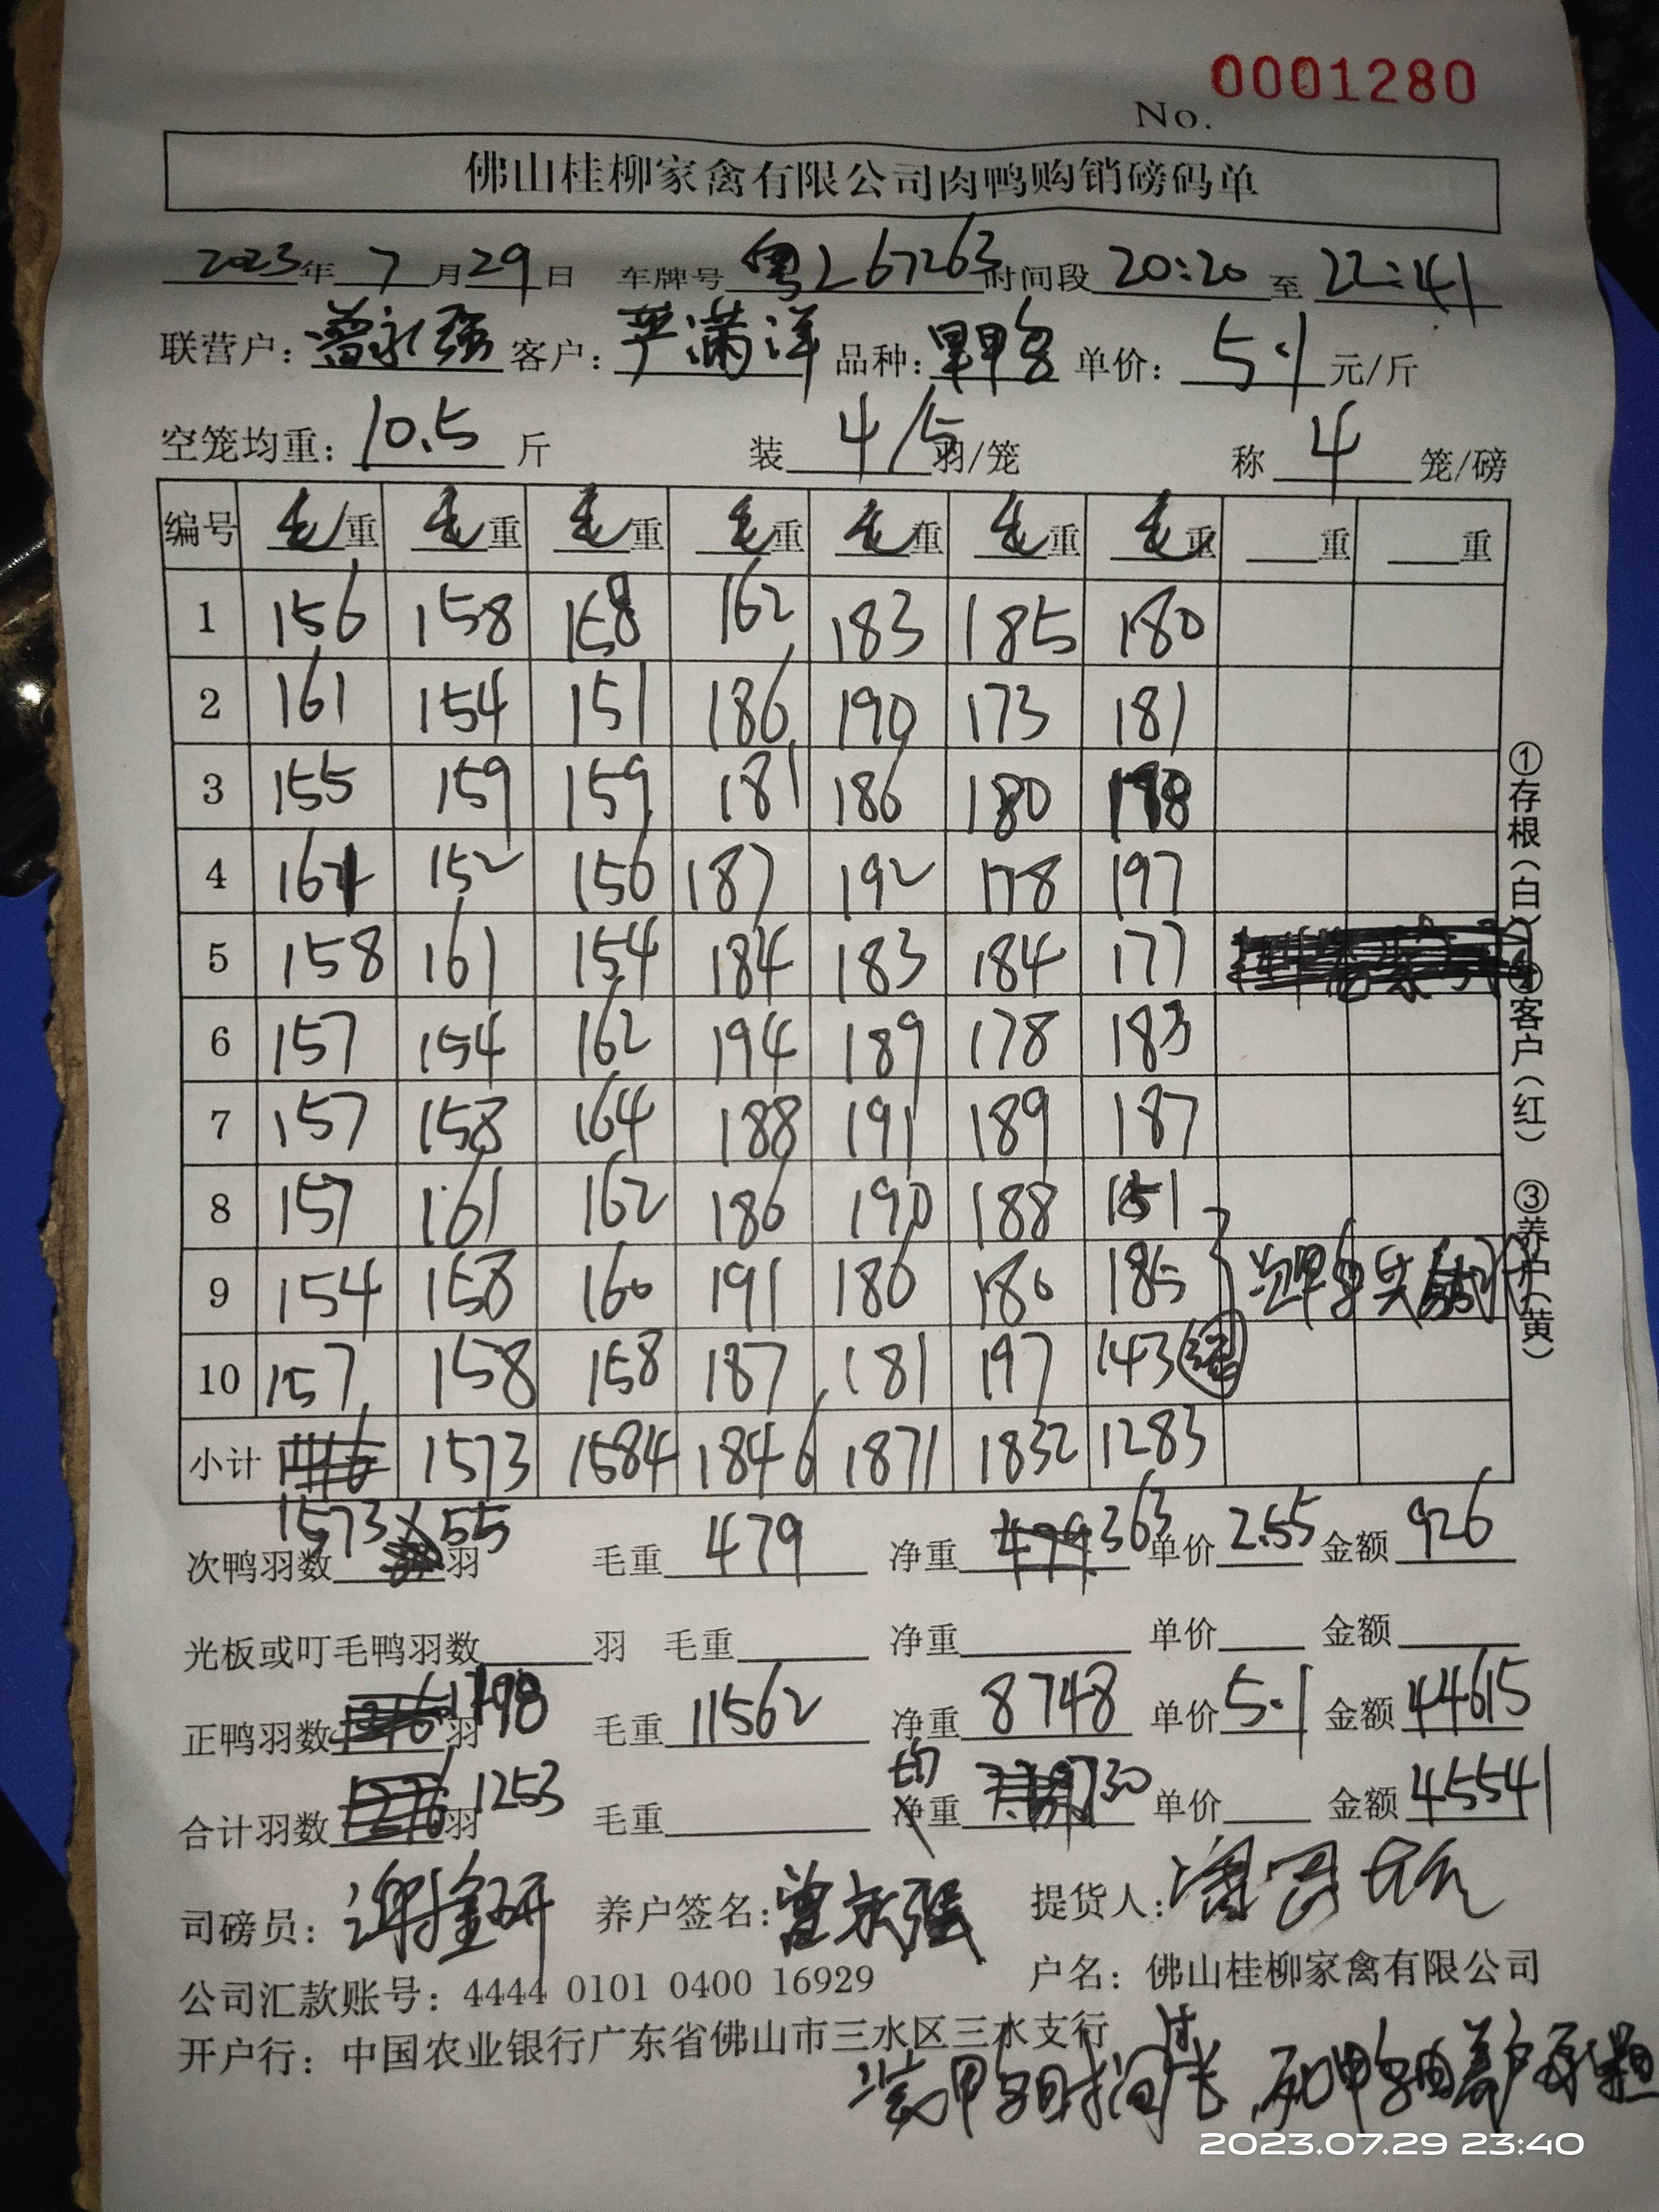 No. 0001280
佛山桂柳家禽有限公司肉鸭购销磅码单
2023年 7 月 29 日 车牌号 粤L67263 时间段 20:20 至 22:41
联营户: 曾永强 客户: 严满洋 品种: 单价: 5.1 元/斤
空笼均重: 10.5 斤 装 4/5 羽/笼 称 4 笼/磅
编号 毛重 毛重 毛重 毛重 毛重 毛重 毛重 重 重
1 156 158 158 162 183 185 180
2 161 154 151 186 190 173 181
3 155 159 159 181 186 180 198
4 161 152 156 187 192 178 197
5 158 161 154 184 183 184 177
6 157 154 162 194 189 178 183
7 157 158 164 188 191 189 187
8 157 161 162 186 190 188 151
9 154 158 160 191 186 180 185
10 157 158 158 187 181 197 143
小计 1573 1584 1846 1871 1832 1283
1573
次鸭羽数 55 羽 毛重 479 净重 363 单价 2.55 金额 926
光板或叮毛鸭羽数 羽 毛重 净重 单价 金额
正鸭羽数 1198 羽 毛重 11562 净重 8748 单价 5.1 金额 44615
合计羽数 1253 羽 毛重 均重 7.30 单价 金额 45541
司磅员: 养户签名: 曾永强 提货人:
公司汇款账号: 4444 0101 0400 16929 户名: 佛山桂柳家禽有限公司
开户行: 中国农业银行广东省佛山市三水区三水支行
装鸭时间过长,死鸭由养户承担
①存根(白) ②客户(红) ③养户(黄)
2023.07.29 23:40